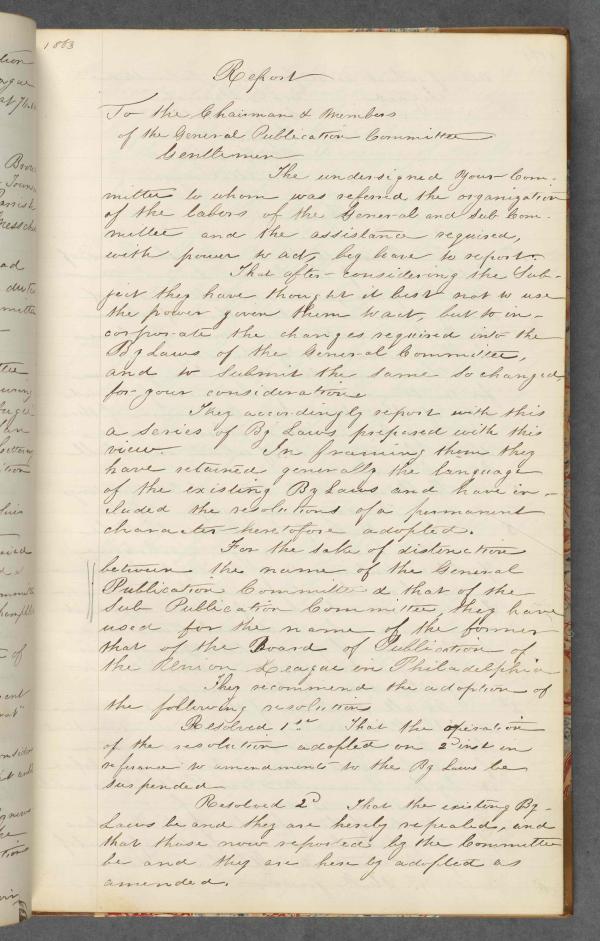 1863
Report
To the Chairman & Members
of the General Publication Committee
Gentlemen
The undersigned your Com-
mittee to whom was referred the organization
of the labors of the General and Sub Com-
mittee and the assistance required,
with power to act, beg leave to report.
That after considering the Sub-
ject they have thought it best not to use
the power given them to act, but to in-
corporate the changes required into the
By Laws of the General Committee,
and to submit the same so changed,
for your consideration.
They accordingly report with this
a series of By Laws prepared with this
view. In framing them they
have retained generally the language
of the existing By Laws and have in-
cluded the resolutions of a permanent
character heretofore adopted.
For the sake of distinction
between the name of the General
Publication Committee & that of the
Sub Publication Committee, they have
used for the name of the former
that of the Board of Publication of
the Union League in Philadelphia
They recommend the adoption of
the following resolution
Resolved 1st That the operation
of the resolution adopted on 2d inst in
reference to amendments to the By Laws be
suspended
Resolved 2d That the existing By-
Laws be and they are hereby repealed, and
that those now reported by the Committee
be and they are hereby adopted as
amended.